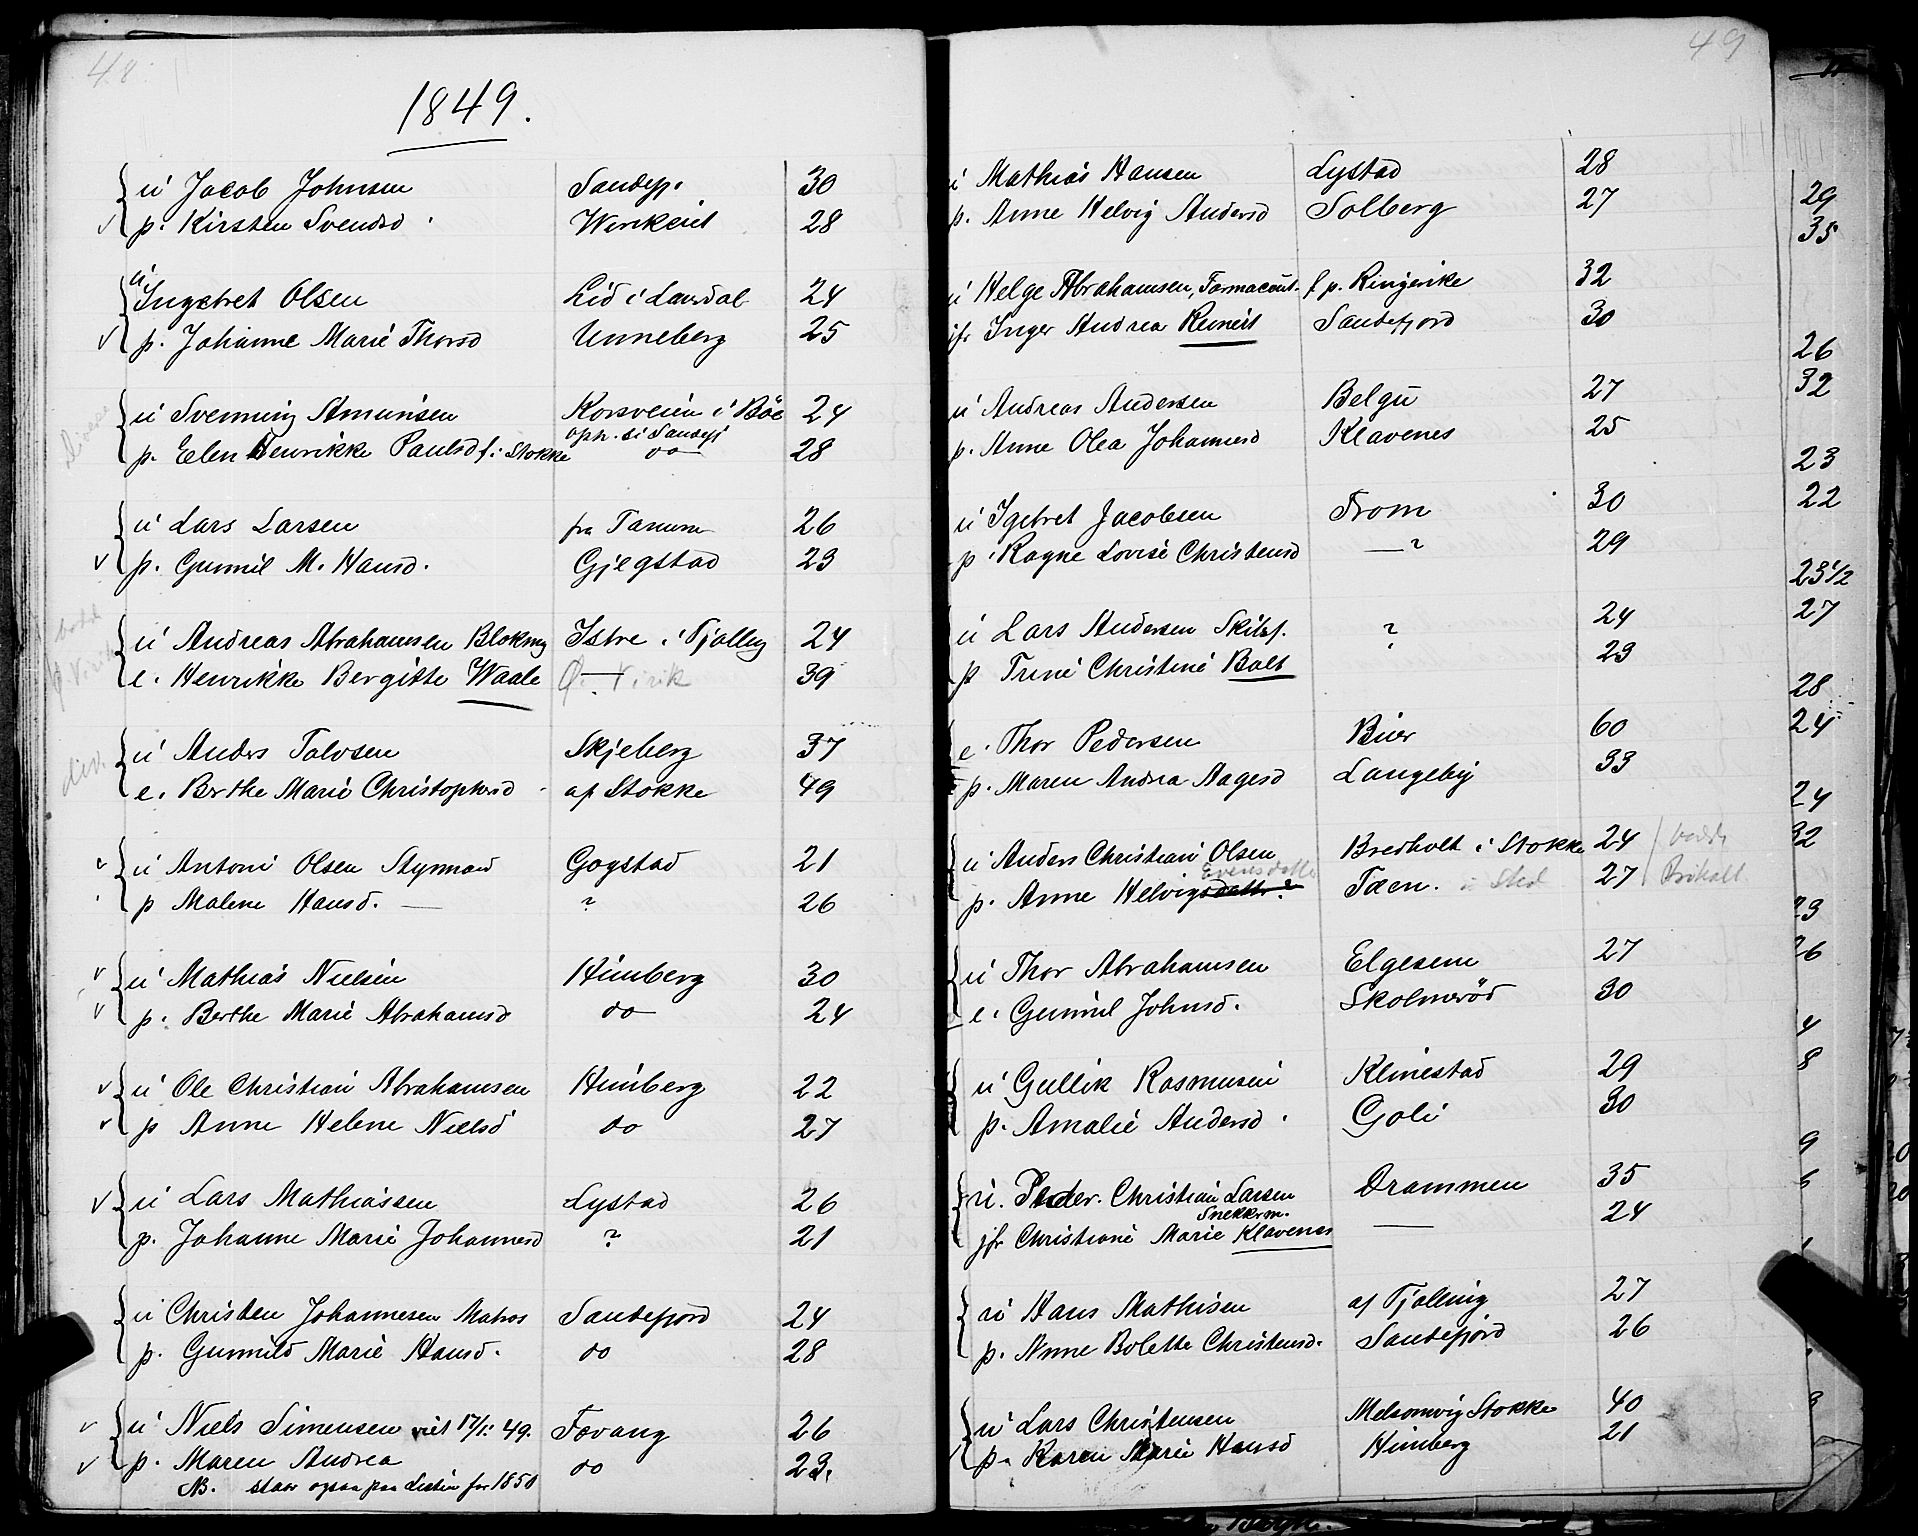 48
1849.
u Jacob Johnsen Sandefj. 30
p. Kirsten Svendsd 28
u Ingebret Olsen Lid i Laurdal 24
p. Johanne Marie Thorsd Unneberg 25
u Svenning Amunsen Korsveien i Böe 24
oph. i Sandefj
p. Elen Henrikke Paulsd f. i Stokke do 28
u Lars Larsen fra Tanum 26
p. Gunnil M. Hansd. Gjegstad 23
u Andreas Abrahamsen Blokmg Istre i Tjølling 24
e. Henrikke Bergitte Waale Virik 39
u Anders Talvsen Skjeberg 37
e. Berthe Marie Christophersd af Stokke 49
u Antoni Olsen Styrmand Gogstad 21
p Malene Hansd. — ? 26
u Mathias Nielsen Himberg 30
p. Berthe Marie Abrahamsd do 24
u Ole Christian Abrahamsen Himberg 22
p Anne Helene Nielsd do 27
u Lars Mathiassen Lystad 26
p. Johanne Marie Johannesd ? 21
u Christen Johannesen Matros Sandefjord 24
p. Gunnild Marie Hansd. do 28
u Niels Simensen viet 17/1 49. Fevang 26
p. Maren Andrea do 23.
NB. staar ogsaa paa Listen for 1850
49
u Mathias Hansen Lystad 28
p. Anne Helvig Andersd Solberg 27
u Helge Abrahamsen, Farmaceut. f. p. Ringerike 32
jfr Inger Andrea Reinert Sandefjord 30
u Andreas Andersen Belgu 27
p. Anne Olea Johannesd Klavenes 25
u Igebret Jacobsen From 30
p. Ragne Lovise Christensd —? 29
u Lars Andersen Skibsf. ? 24
p Trine Christine Bolt 23
e. Thor Pedersen Buer 60
p. Maren Andrea Aagesd Langeby 33
u Anders Christian Olsen Bredholt i Stokke 24
Evensdatter
p. Anne Helvigsdattr? Tæen. 27
u Thor Abrahamsen Elgesem 27
e. Gunnil Johnsd. Skolmeröd 30
u Gullik Rasmusen Klinestad 29
p. Amalie Andersd Goli 30
u. Peder Christian Larsen Drammen 35
Snekkerm.
jfr Christiane Marie Klavenes — 24
u Hans Mathisen af Tjølling 27
p. Anne Bolette Christensd. Sandefjord 26
u Lars Christensen Melsomvig Stokke 40
p. Karen Marie Hansd Himberg 21
29
35
26
32
23
22
23 1/2
27
28
24
24
32